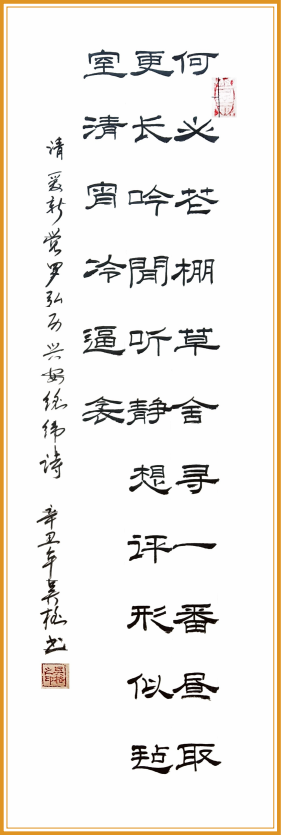 何必花棚草舍寻一番昼取
更长吟閒听静想评形似毡
室清宵冷逼衾
清爱新觉罗弘历兴安络纬诗 辛丑年吴书